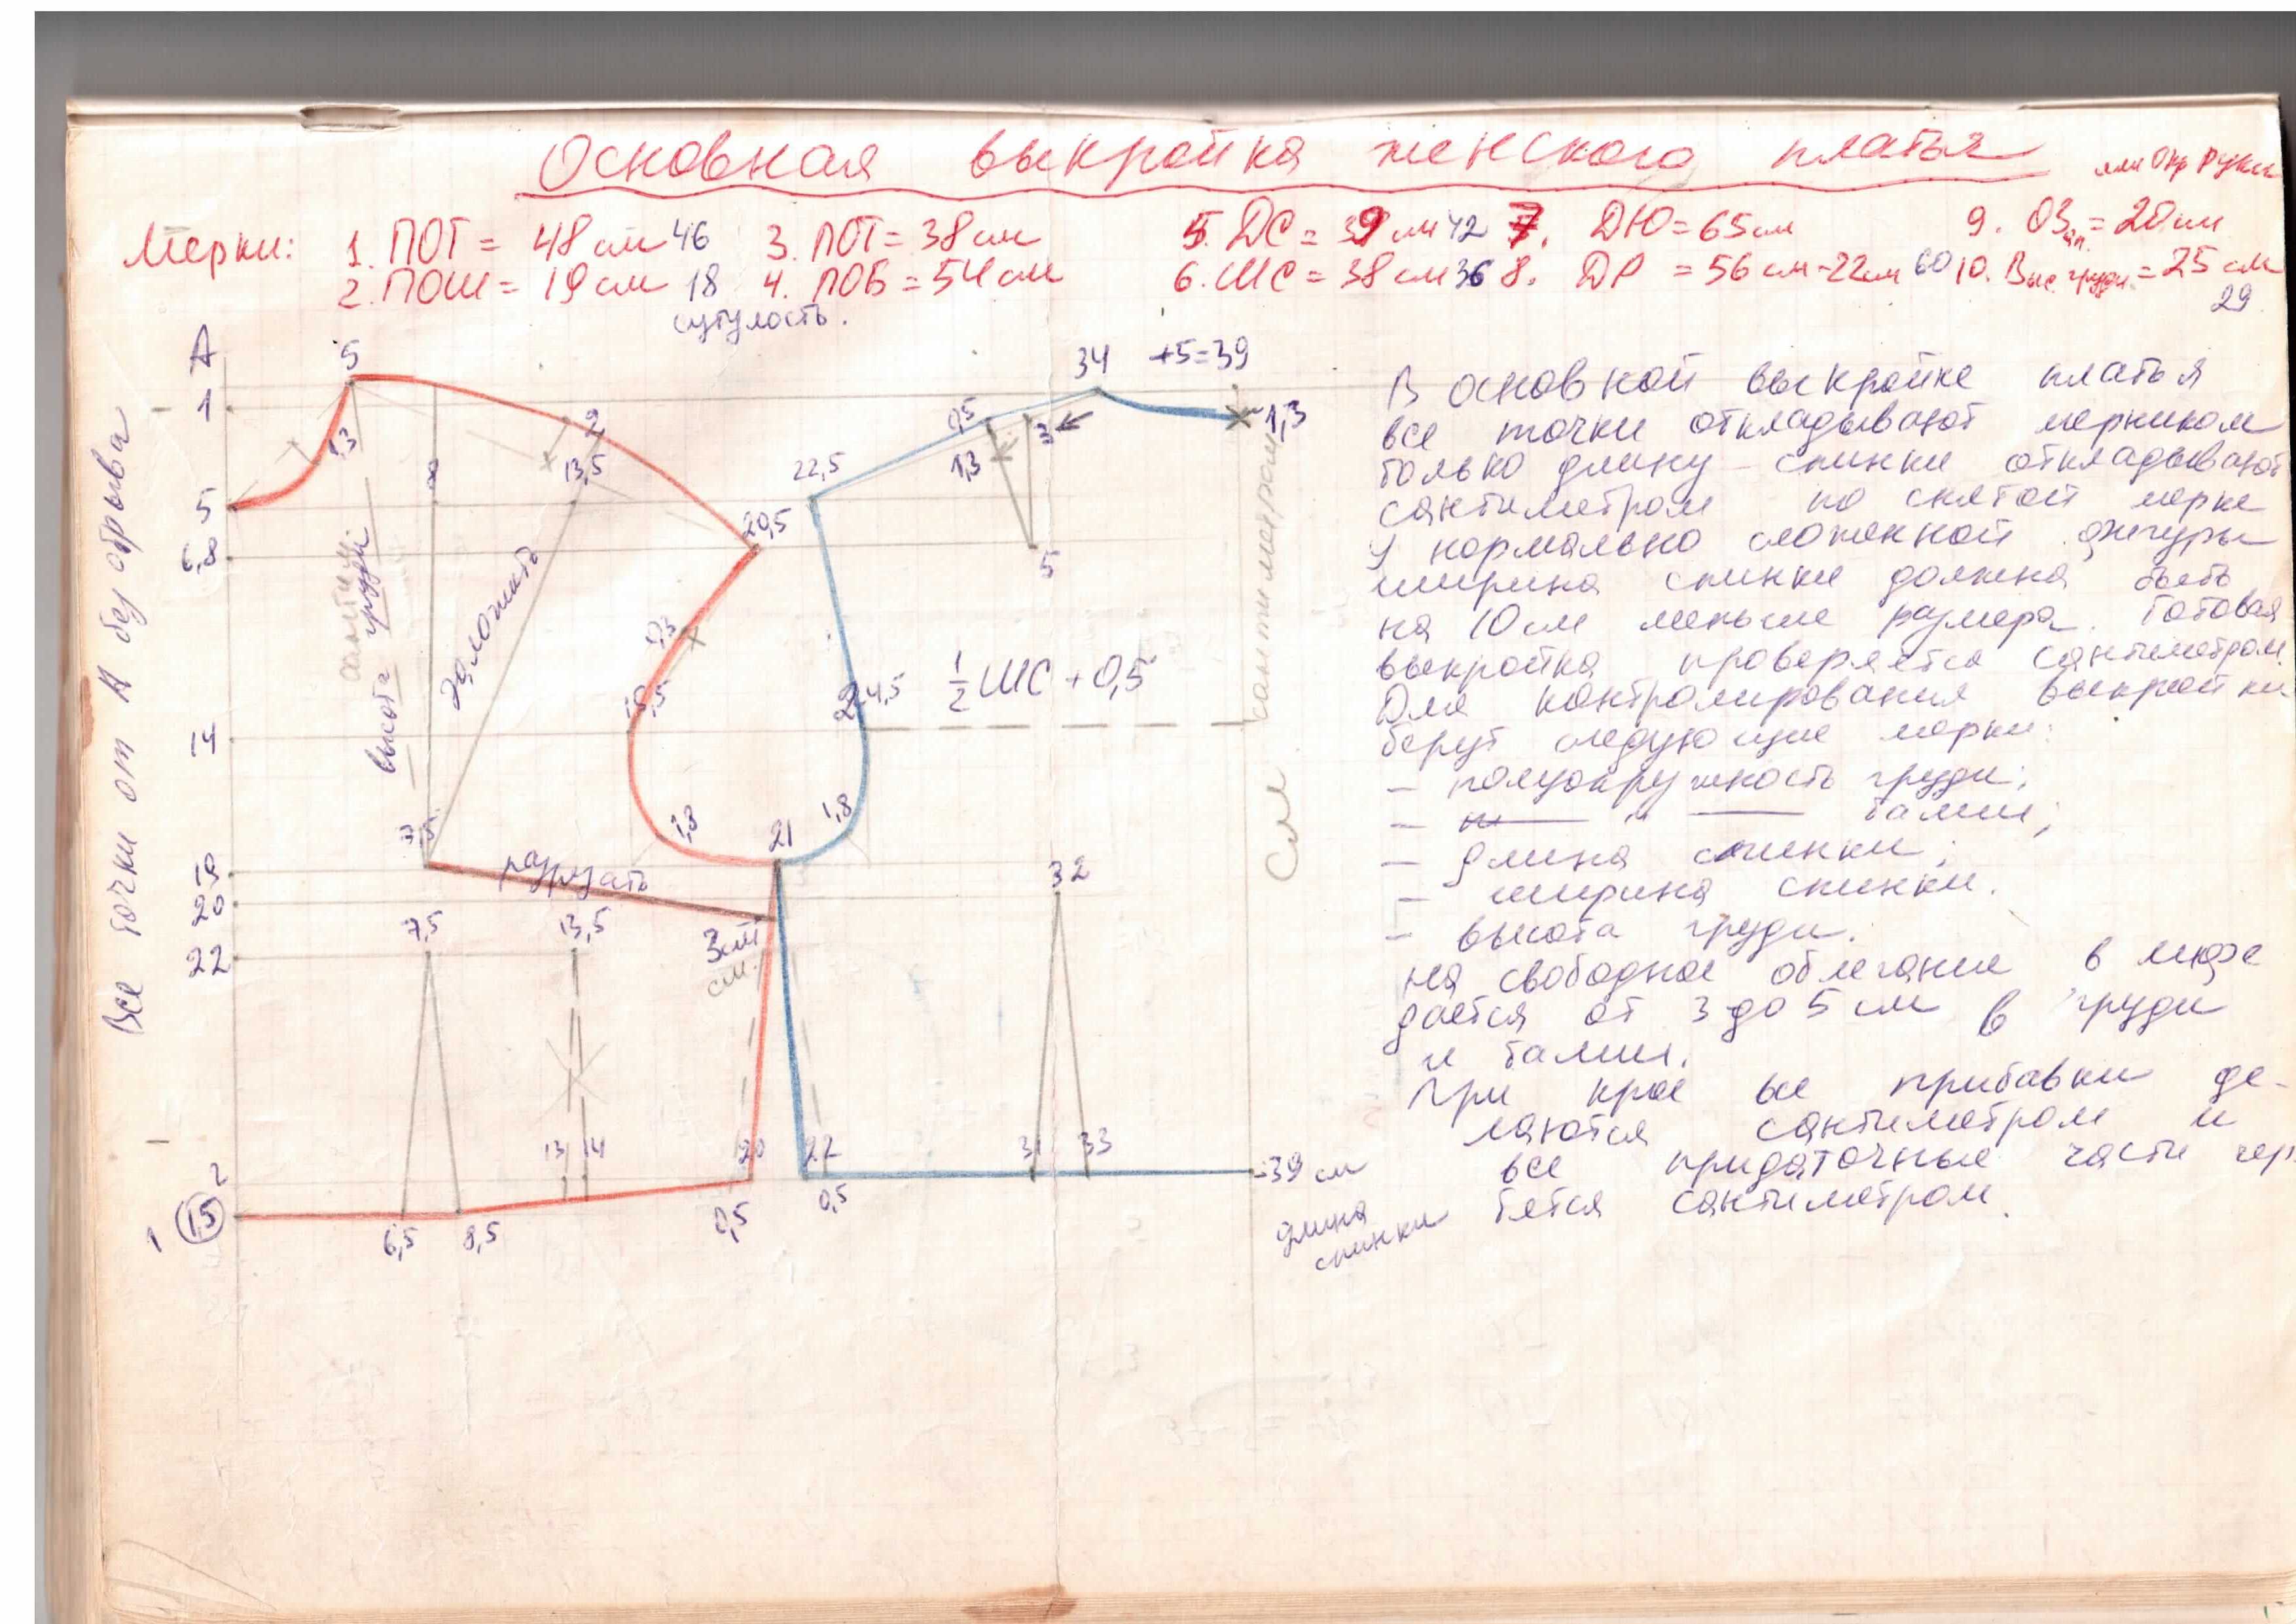 Основная выкройка женского платья
или Окр руки
Мерки: 1. ПОГ = 48 см 46 3. ПОТ = 38 см 5. ДС = 39 см 42 7. ДЮ = 65 см 9. ОЗап. = 20 см
2. ПОШ = 19 см 18 4. ПОБ = 54 см 6. ШС = 38 см 36 8. ДР = 56 см - 22 см 60 10. Выс. груди = 25 см
сутулость. 29
А 5 34 +5=39
1 2 9,5 3 1,3
1,3 13,5 1,3
22,5
5 20,5
6,8 5
Все точки от А без отрыва
высота груди
заложить
сантиметром
0,3
24,5 1/2 ШС + 0,5
14
1,8 1,8
7,5 21
разрезать
19
20 32
7,5 13,5 3 см
см.
22
13 14 20 22 31 33
2 39 см
1 1,5 0,5 0,5
6,5 8,5
длина
спинки
В основной выкройке платья
все точки откладывают мерником
только длину спинки откладывают
сантиметром по снятой мерке
У нормально сложенной фигуры
ширина спинки должна быть
на 10 см меньше размера. Готовая
выкройка проверяется сантиметром.
Для контролирования выкройки
берут следующие мерки:
- полуокружность груди;
- — " — талии;
- длина спинки;
- ширина спинки.
- высота груди.
На свободное облегание в лифе
дается от 3 до 5 см в груди
и талии.
При крое все прибавки де-
лаются сантиметром и
все придаточные части чер
тятся сантиметром.